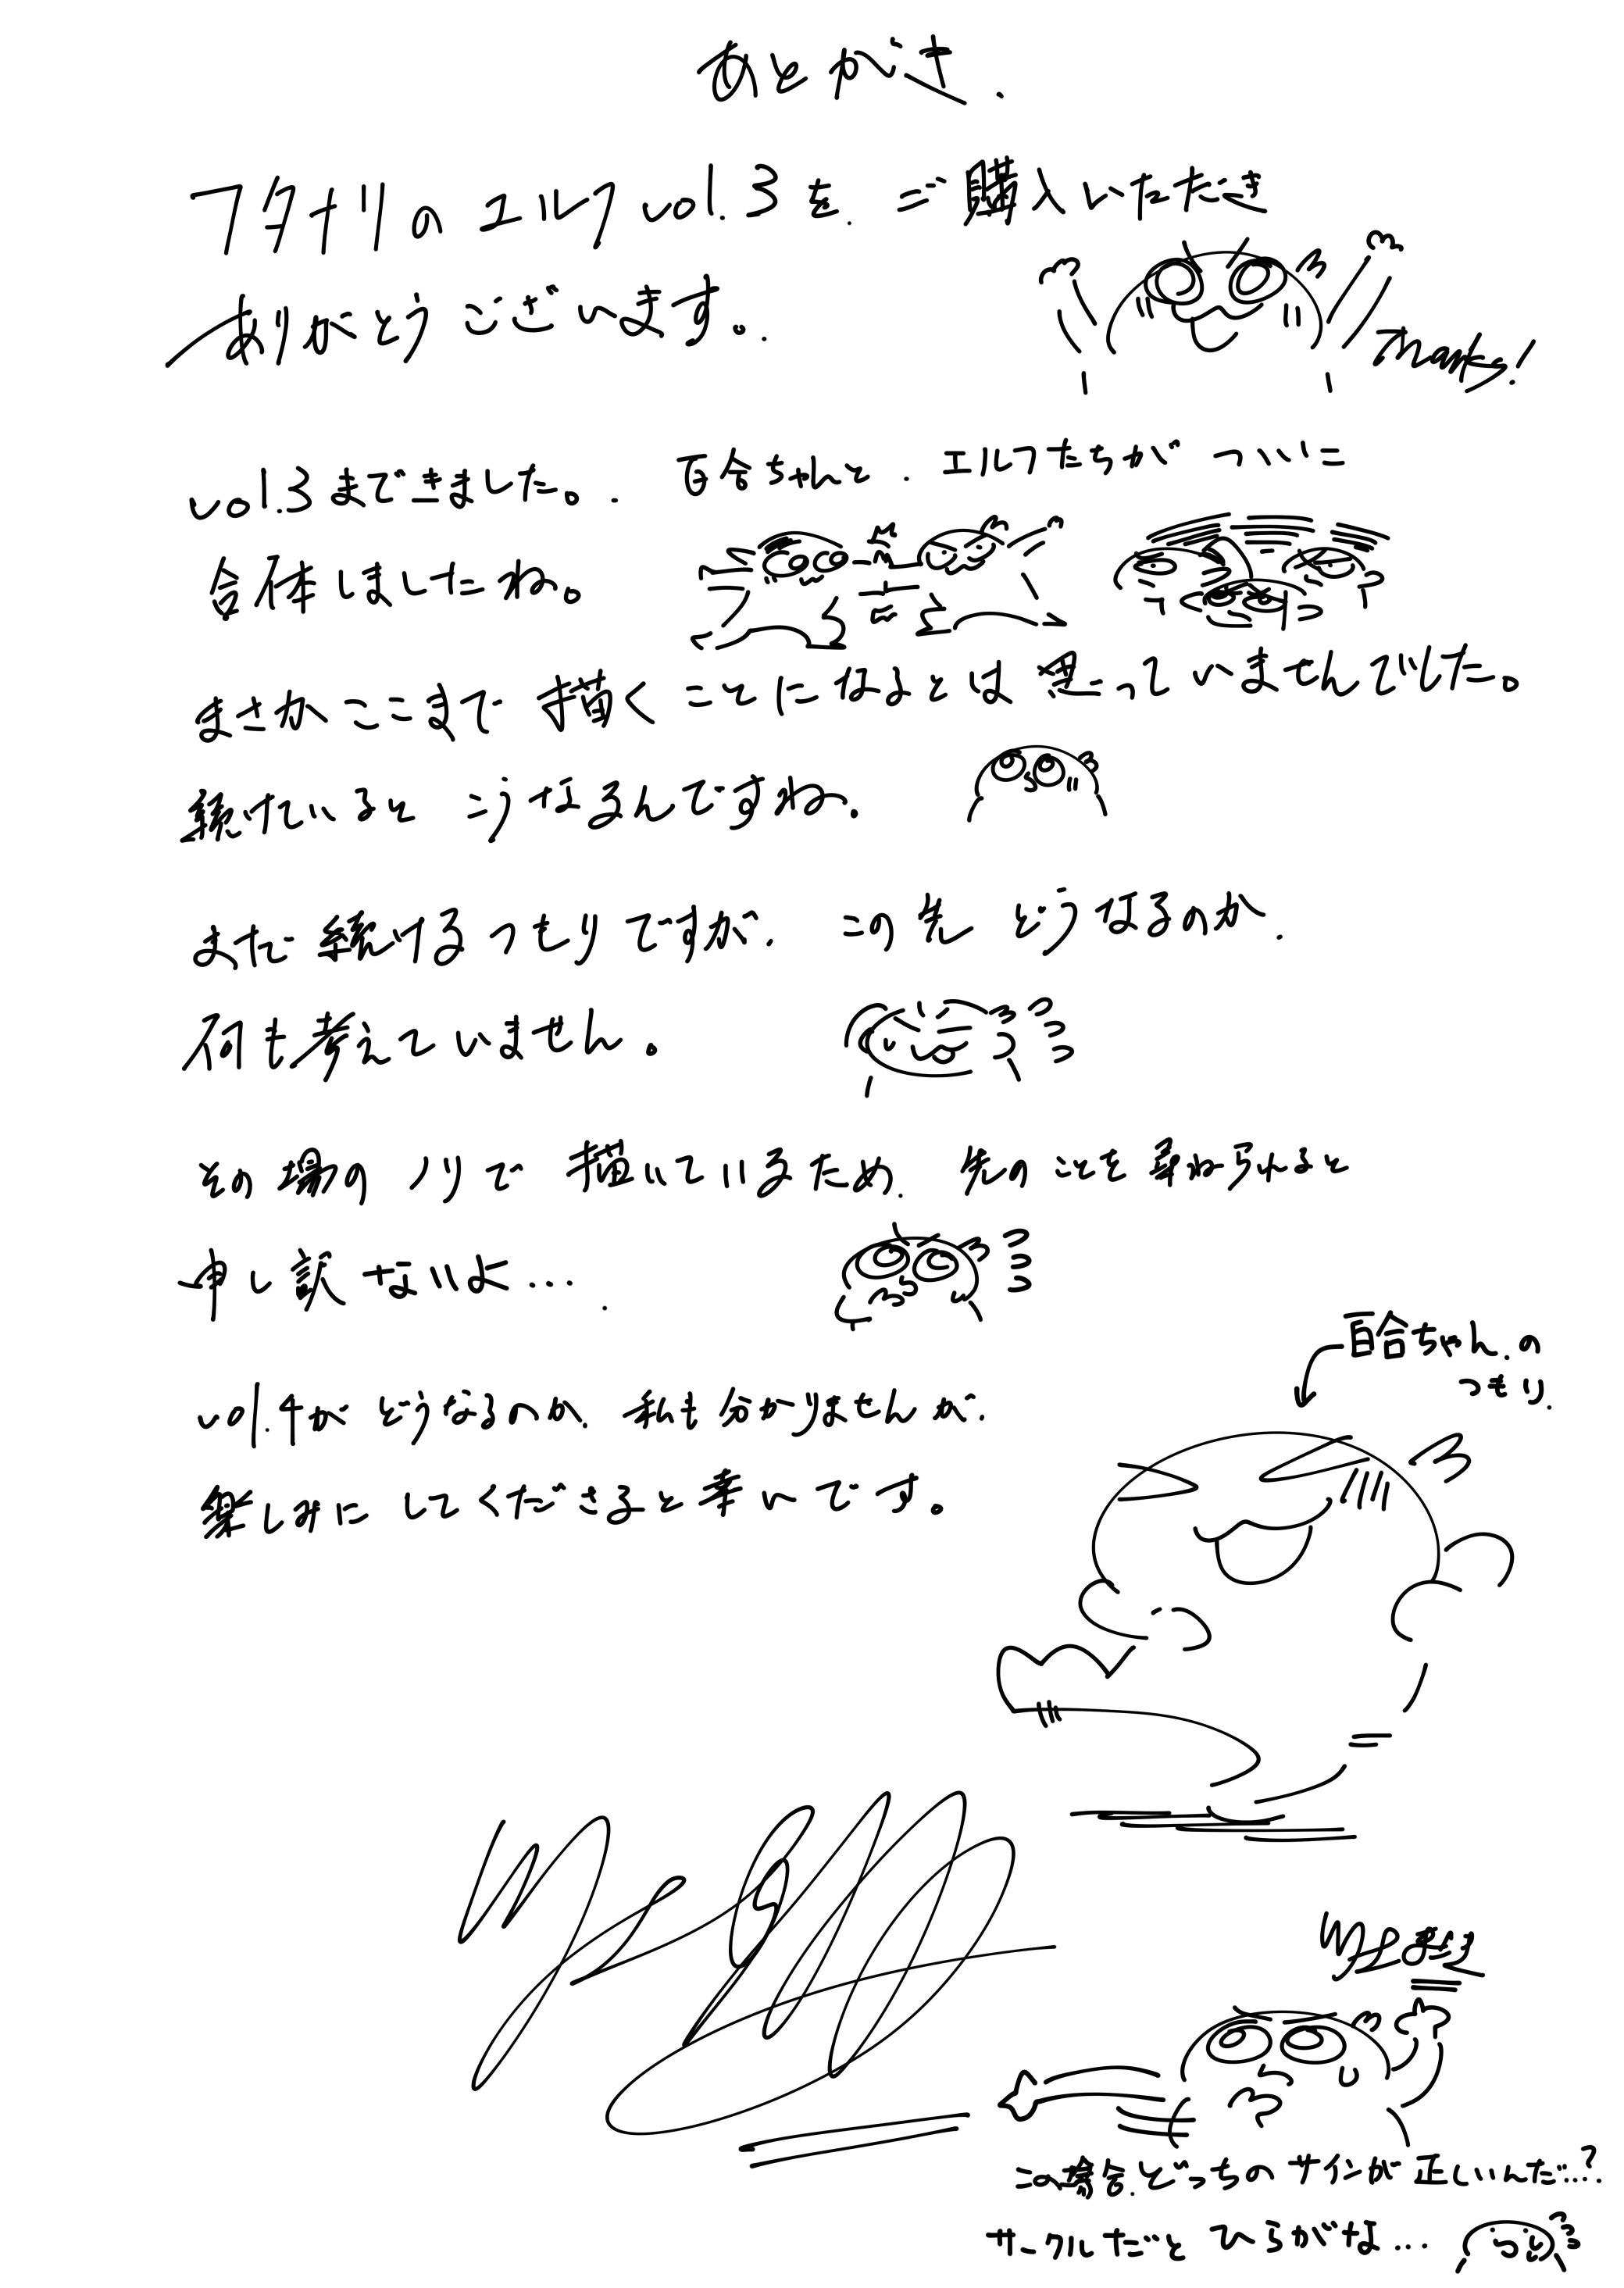 あとがき.
フタナリのエルフvol.3を.ご購入いただき
ありがとうございます。.
Thanks!
vol.3まできました。. 百合ちゃんと.エルフたちがついに
合体しましたね。
まさかここまで描くことになるとは思っていませんでした。
続けていると こうなるんですね。
まだ続けるつもりですが. この先どうなるのか.
何も考えていません。
その場のノリで描いているため. 先のことを尋ねられると
申し訳ないよ….
百合ちゃん.の
つもり.
vol.4がどうなるのか. 私も分かりませんが.
楽しみにしてくださると幸いです。
この場合.どっちのサインが正しいんだ……?
サークルだとひらがな…